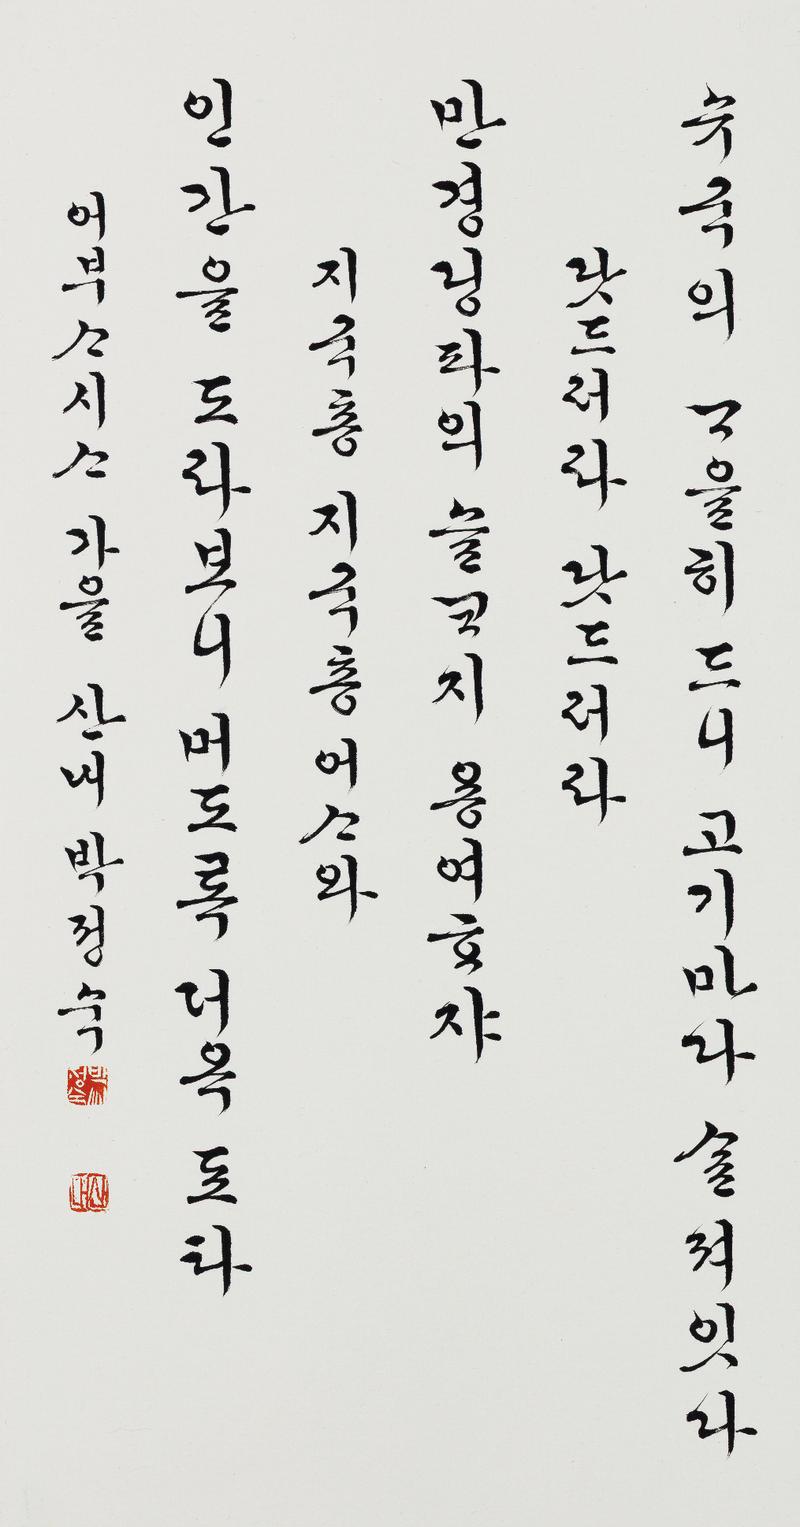 슈국의 ᄀᆞ을히 드니 고기마다 ᄉᆞᆯ져잇다
닷드러라 닷드러라
만경딩파의 슬ᄏᆞ지 용여ᄒᆞ쟈
지국총 지국총 어ᄉᆞ와
인간을 도라보니 머도록 더옥 도타
어부ᄉᆞ시ᄉᆞ 가을 산내 박정숙